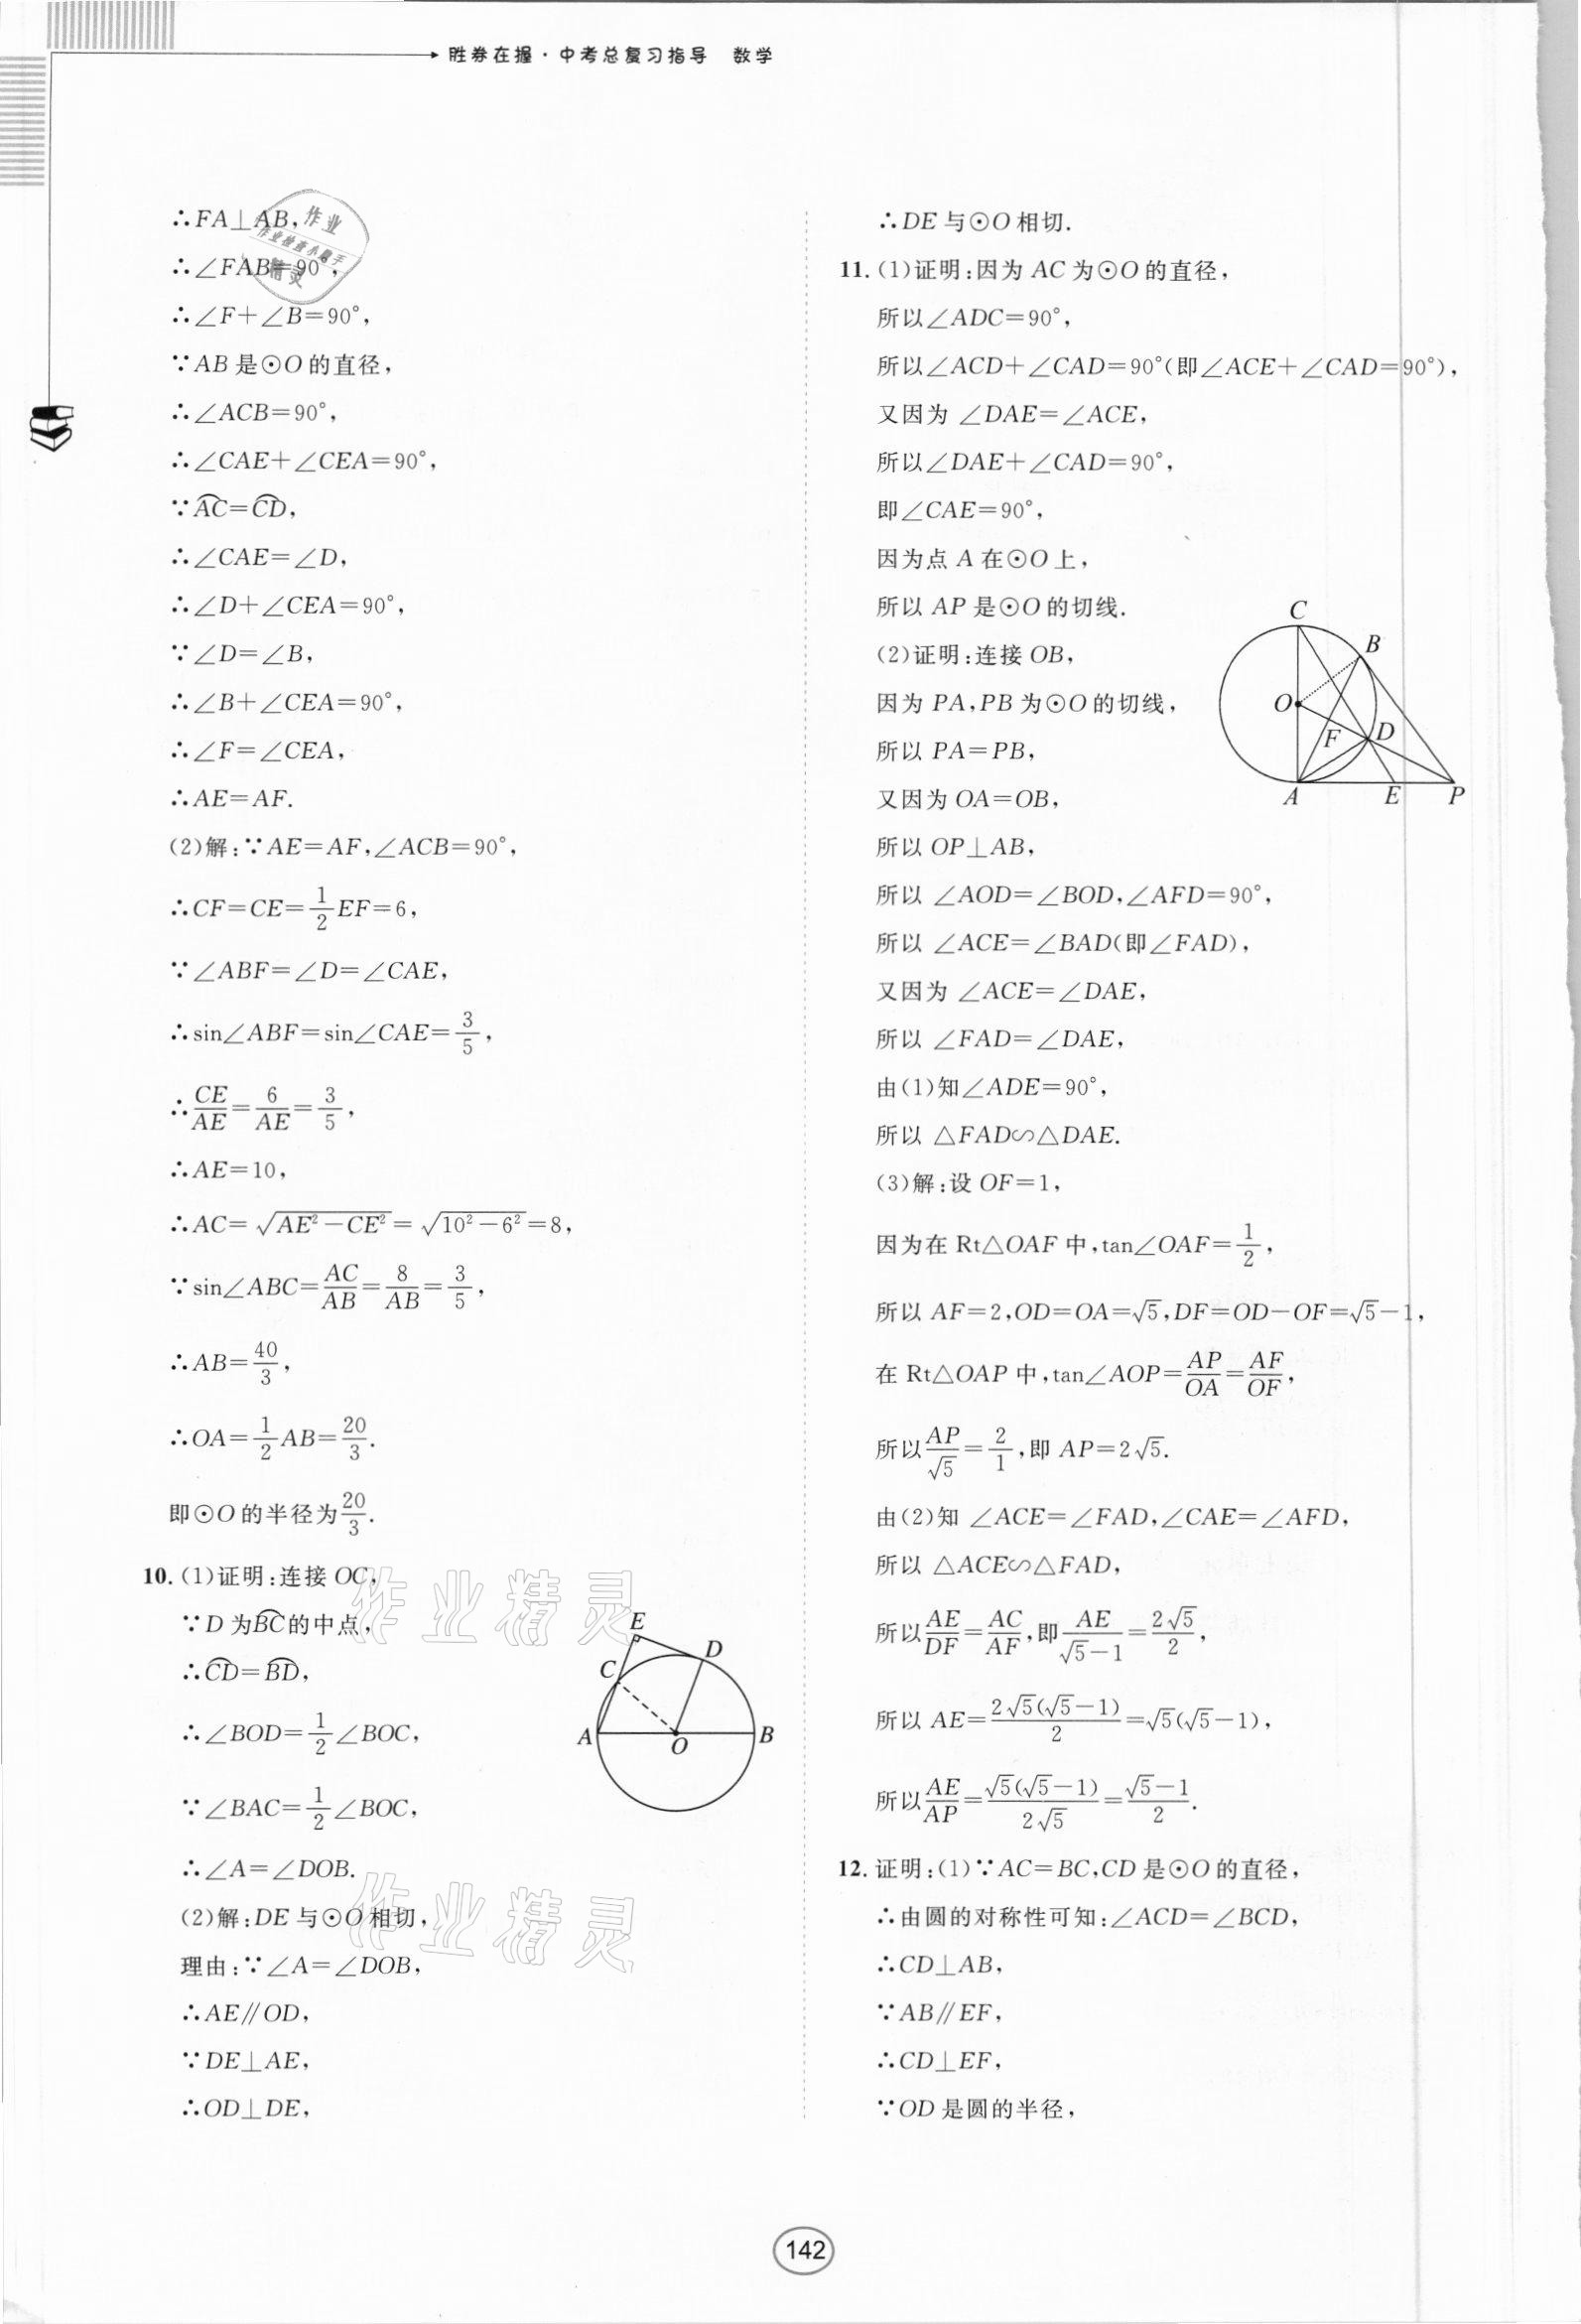 胜券在握·中考总复习指导 数学
∴FA⊥AB,
∴∠FAB=90°,
∴∠F+∠B=90°,
∵AB是⊙O的直径,
∴∠ACB=90°,
∴∠CAE+∠CEA=90°,
∵⌒AC=⌒CD,
∴∠CAE=∠D,
∴∠D+∠CEA=90°,
∵∠D=∠B,
∴∠B+∠CEA=90°,
∴∠F=∠CEA,
∴AE=AF.
(2)解:∵AE=AF,∠ACB=90°,
∴CF=CE=1/2 EF=6,
∵∠ABF=∠D=∠CAE,
∴sin∠ABF=sin∠CAE=3/5,
∴CE/AE=6/AE=3/5,
∴AE=10,
∴AC=√(AE²-CE²)=√(10²-6²)=8,
∵sin∠ABC=AC/AB=8/AB=3/5,
∴AB=40/3,
∴OA=1/2 AB=20/3.
即⊙O的半径为20/3.
10.(1)证明:连接OC,
∵D为⌒BC的中点,
∴⌒CD=⌒BD,
∴∠BOD=1/2∠BOC,
∵∠BAC=1/2∠BOC,
∴∠A=∠DOB.
(2)解:DE与⊙O相切,
理由:∵∠A=∠DOB,
∴AE∥OD,
∵DE⊥AE,
∴OD⊥DE,
E
D
C
A
O
B
∴DE与⊙O相切.
11.(1)证明:因为AC为⊙O的直径,
所以∠ADC=90°,
所以∠ACD+∠CAD=90°(即∠ACE+∠CAD=90°),
又因为∠DAE=∠ACE,
所以∠DAE+∠CAD=90°,
即∠CAE=90°,
因为点A在⊙O上,
所以AP是⊙O的切线.
(2)证明:连接OB,
因为PA,PB为⊙O的切线,
所以PA=PB,
又因为OA=OB,
所以OP⊥AB,
所以∠AOD=∠BOD,∠AFD=90°,
所以∠ACE=∠BAD(即∠FAD),
又因为∠ACE=∠DAE,
所以∠FAD=∠DAE,
由(1)知∠ADE=90°,
所以△FAD∽△DAE.
(3)解:设OF=1,
因为在Rt△OAF中,tan∠OAF=1/2,
所以AF=2,OD=OA=√5,DF=OD-OF=√5-1,
在Rt△OAP中,tan∠AOP=AP/OA=AF/OF,
所以AP/√5=2/1,即AP=2√5.
由(2)知∠ACE=∠FAD,∠CAE=∠AFD,
所以△ACE∽△FAD,
所以AE/DF=AC/AF,即AE/(√5-1)=2√5/2,
所以AE=2√5(√5-1)/2=√5(√5-1),
所以AE/AP=√5(√5-1)/2√5=(√5-1)/2.
C
B
O
F
D
A
E
P
12.证明:(1)∵AC=BC,CD是⊙O的直径,
∴由圆的对称性可知:∠ACD=∠BCD,
∴CD⊥AB,
∵AB∥EF,
∴CD⊥EF,
∵OD是圆的半径,
142
作业
作业检查小助手
精灵
作业精灵
作业精灵